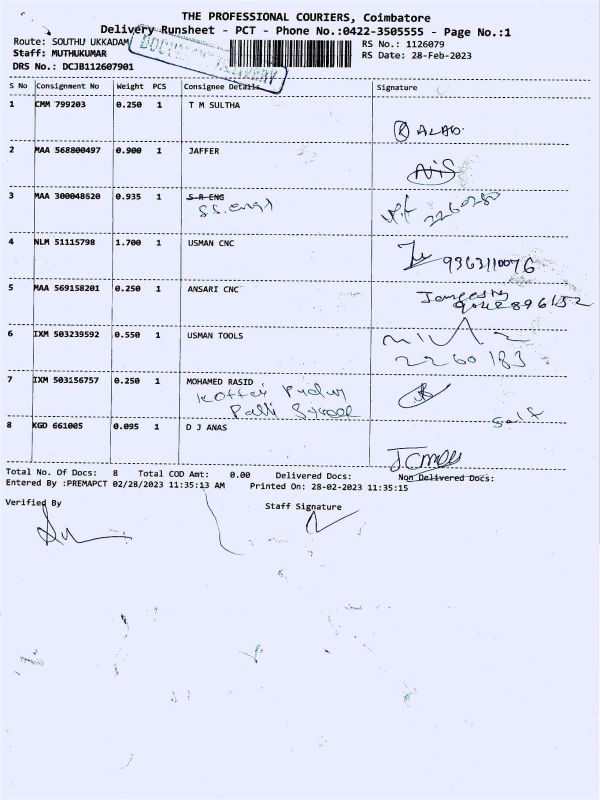 THE PROFESSIONAL COURIERS, Coimbatore
Delivery Runsheet - PCT - Phone No.:0422-3505555 - Page No.:1
Route: SOUTHU UKKADAM
RS No.: 1126079
Staff: MUTHUKUMAR
RS Date: 28-Feb-2023
DRS No.: DCJB112607901
S No Consignment No Weight PCS Consignee Details Signature
1 CMM 799203 0.250 1 T M SULTHA
2 MAA 568800497 0.900 1 JAFFER
3 MAA 300048620 0.935 1 S R ENG
SS. engg
4 NLM 51115798 1.700 1 USMAN CNC
9363110076
5 MAA 569158201 0.250 1 ANSARI CNC
6 IXM 503239592 0.550 1 USMAN TOOLS
2260183
7 IXM 503156757 0.250 1 MOHAMED RASID
Self
8 KGD 661005 0.095 1 D J ANAS
Total No. Of Docs: 8 Total COD Amt: 0.00 Delivered Docs: Non Delivered Docs:
Entered By :PREMAPCT 02/28/2023 11:35:13 AM Printed On: 28-02-2023 11:35:15
Verified By Staff Signature